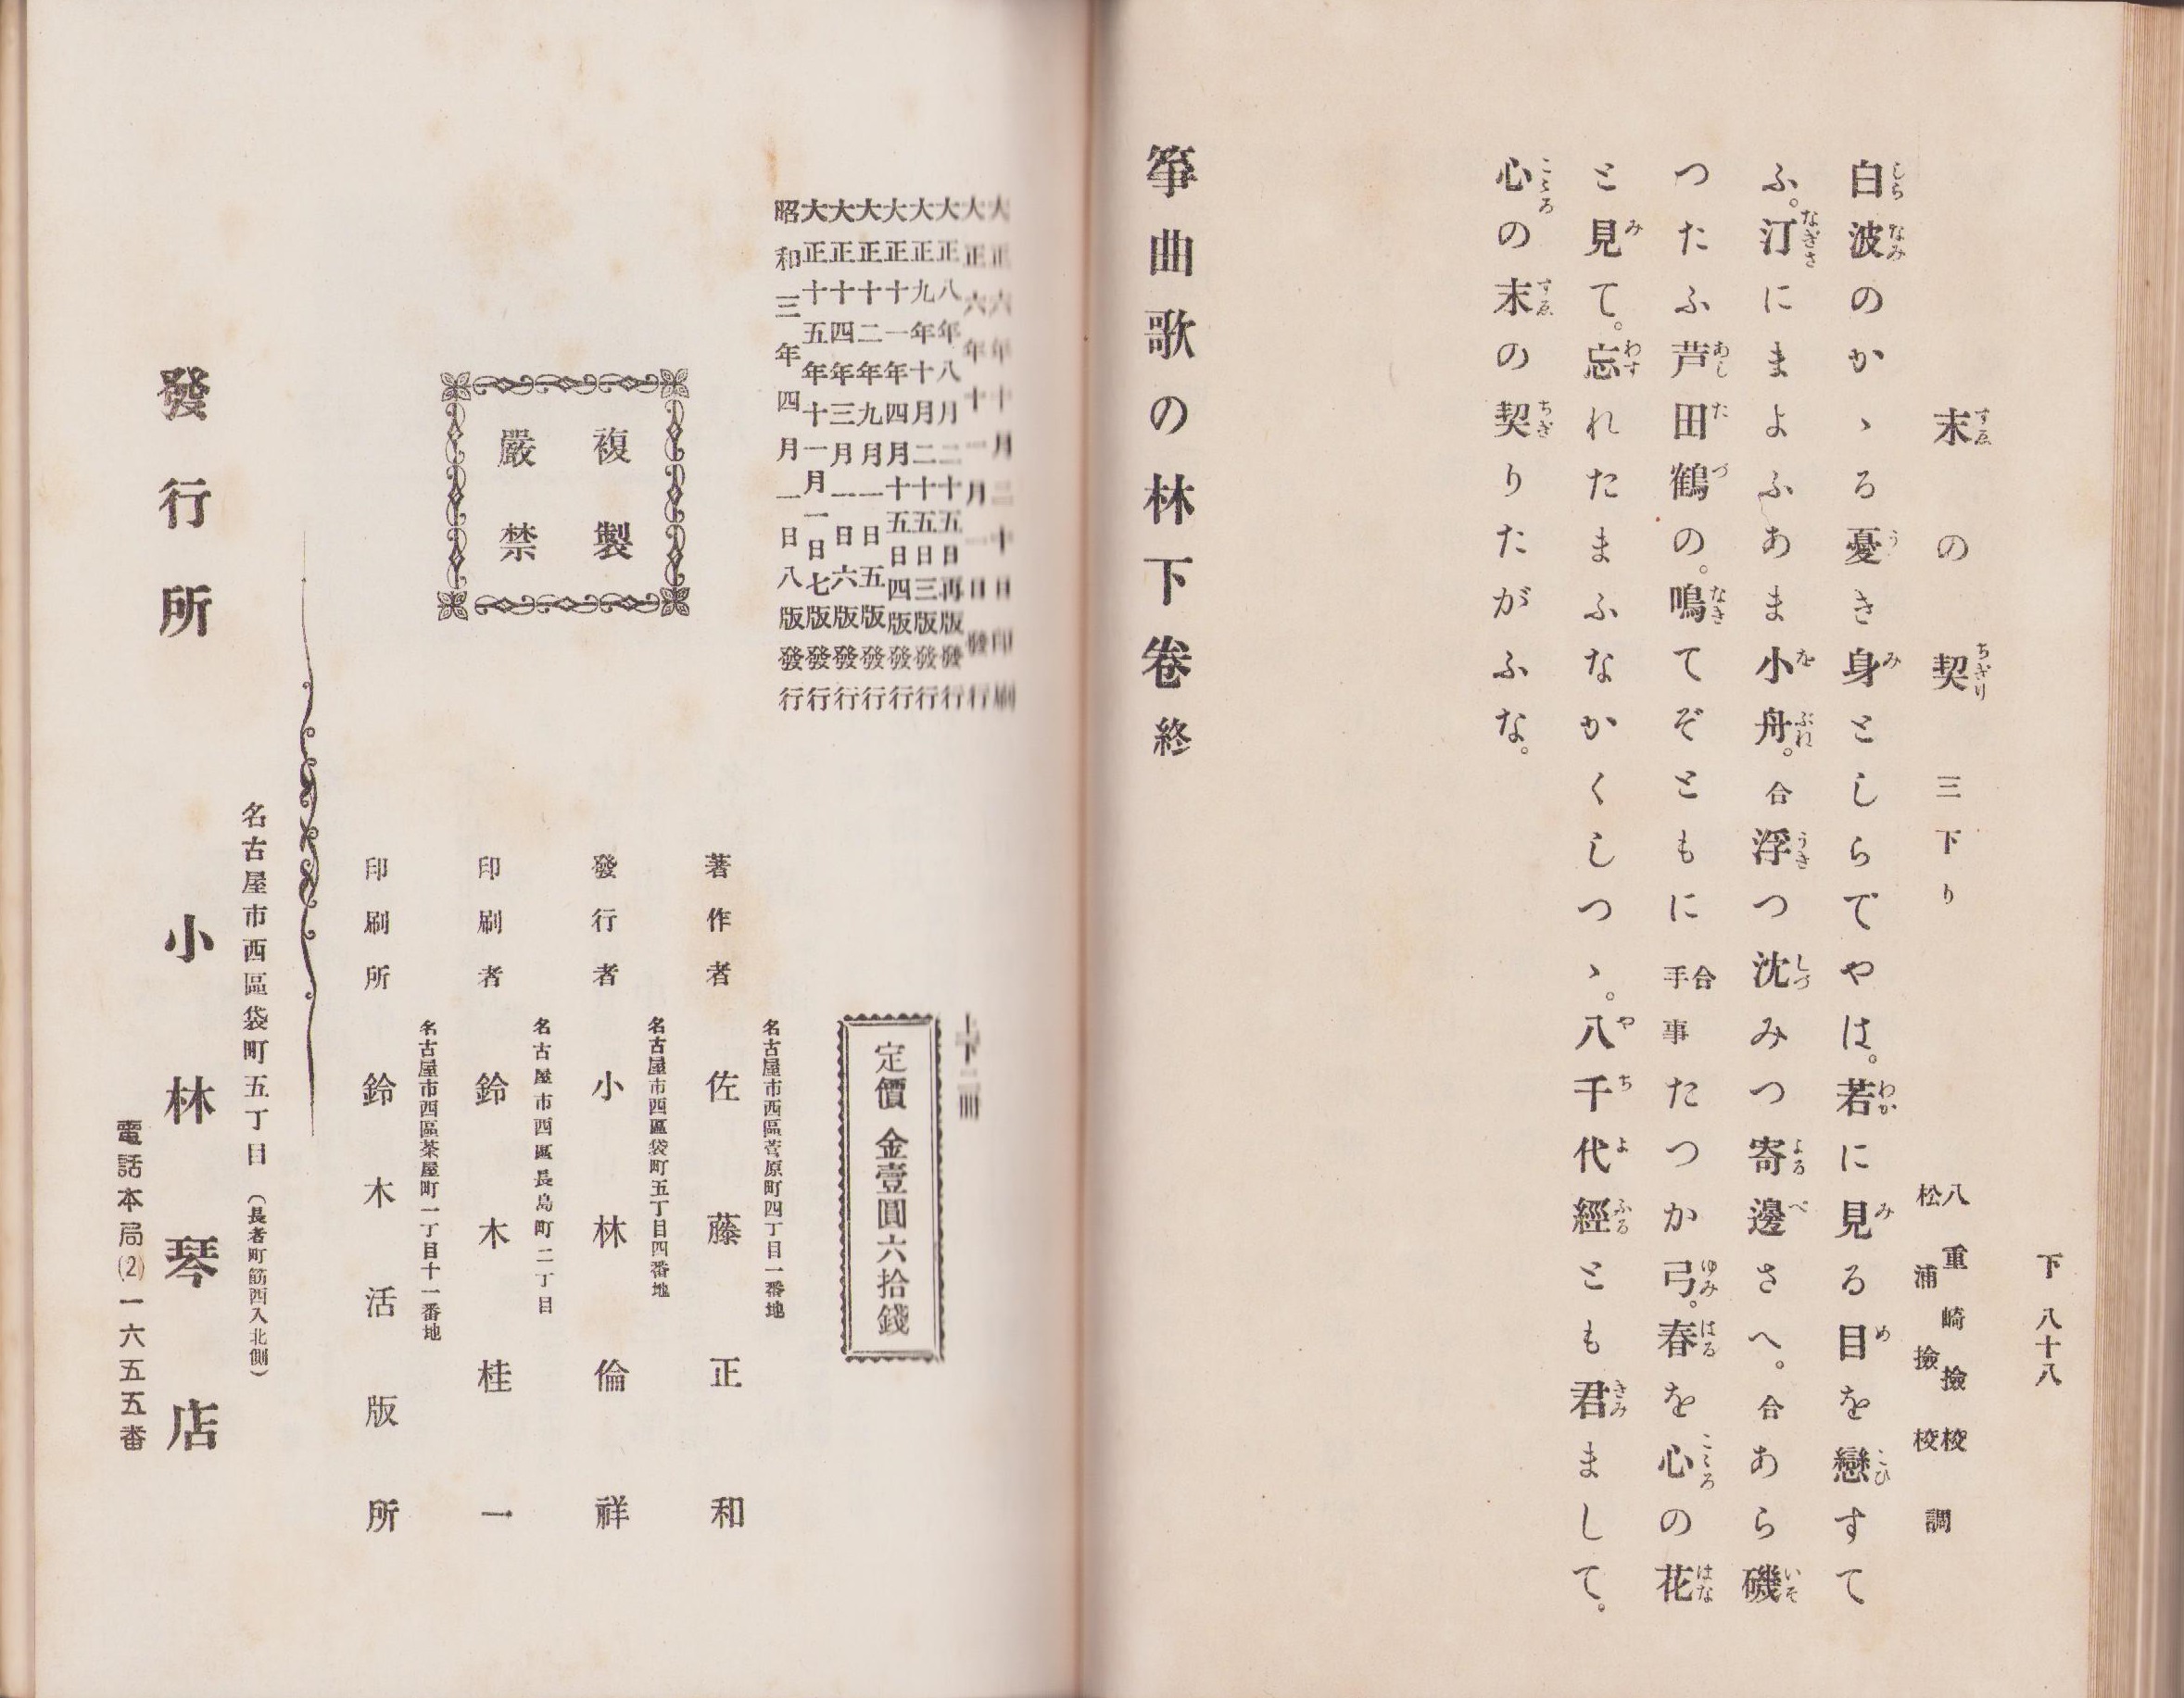 下 八十八
末の契 三下り 八重崎撿校 松浦撿校 調
白波のかゝる憂き身としらでやは。若に見る目を戀すて
ふ。汀にまよふあま小舟。合浮つ沈みつ寄邊さへ。合あら磯
つたふ芦田鶴の。鳴てぞともに合手事たつか弓。春を心の花
と見て。忘れたまふなかくしつゝ。八千代經とも君まして。
心の末の契りたがふな。
箏曲歌の林下卷終
大正六年十一月二十日印刷
大正六年十一月一日發行
大正八年八月二十五日再版發行
大正九年十月二十五日三版發行
大正十一年四月十五日四版發行
大正十二年九月一日五版發行
大正十四年三月一日六版發行
大正十五年十一月一日七版發行
昭和三年四月一日八版發行
上下二冊
定價金壹圓六拾錢
複製
嚴禁
名古屋市西區菅原町四丁目一番地
著作者 佐藤正和
名古屋市西區袋町五丁目四番地
發行者 小林倫祥
名古屋市西區長島町二丁目
印刷者 鈴木桂一
名古屋市西區茶屋町一丁目十一番地
印刷所 鈴木活版所
名古屋市西區袋町五丁目（長者町筋西入北側）
發行所 小林琴店
電話本局(2)一六五五番